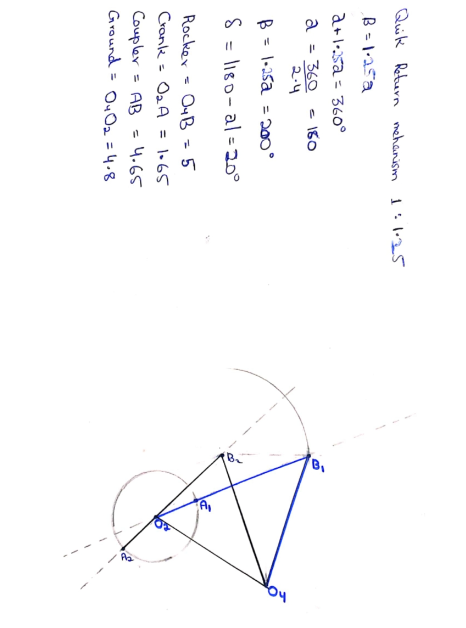 Quik Return mehenism 1:1.25
B = 1.25a
a+1.25a = 360°
a = 360/2.4 = 160
β = 1.25a = 200°
δ = |180 - a| = 20°
Rocker = O4B = 5
Crank = O2A = 1.65
Coupler = AB = 4.65
Ground = O4O2 = 4.8
B2
B1
A1
O2
A2
O4